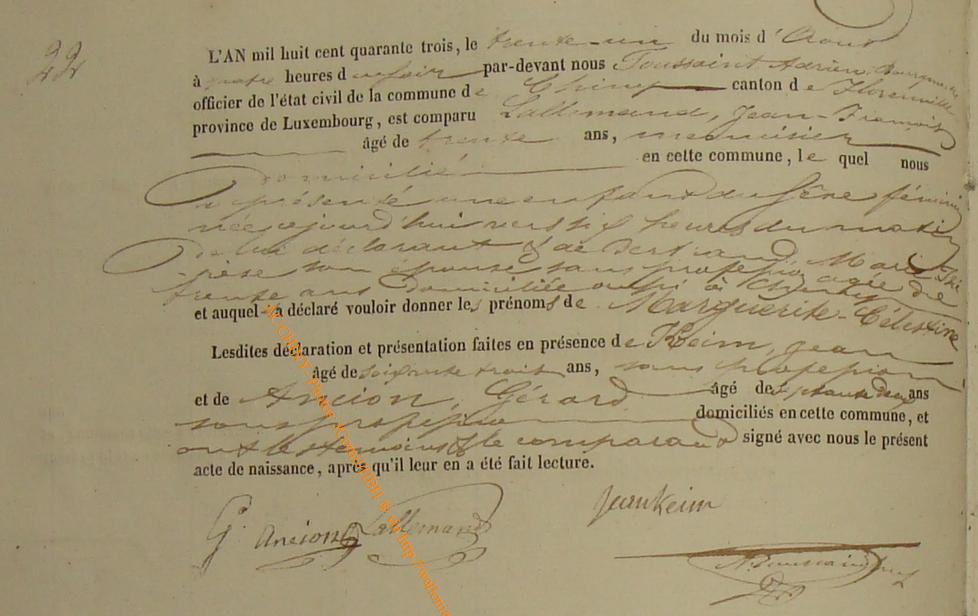 22
L'AN mil huit cent quarante trois, le trente-un du mois d'Aout
à quatre heures du soir par-devant nous Toussaint Adrien, Bourgmestre
officier de l'état civil de la commune de Chiny canton de Florenville
province de Luxembourg, est comparu Lallemand, Jean-François
âgé de trente ans, menuisier
domicilié en cette commune, lequel nous
a présenté une enfant du sexe féminin
née cejourd'hui vers six heures du matin
de lui déclarant & de Bertrand, Marie Thé
-rèse son épouse sans profession agée de
trente ans domiciliée aussi à Chiny
et auquel a déclaré vouloir donner les prénoms de Marguerite-Célestine
Lesdites déclaration et présentation faites en présence de Keim, Jean
âgé de soixante trois ans, sans profession
et de Ancion, Gérard âgé de ans
sans profession domiciliés en cette commune, et
ont les témoins & le comparant signé avec nous le présent
acte de naissance, après qu'il leur en a été fait lecture.
G. Ancion Lallemand Jean Keim
A. Toussaint